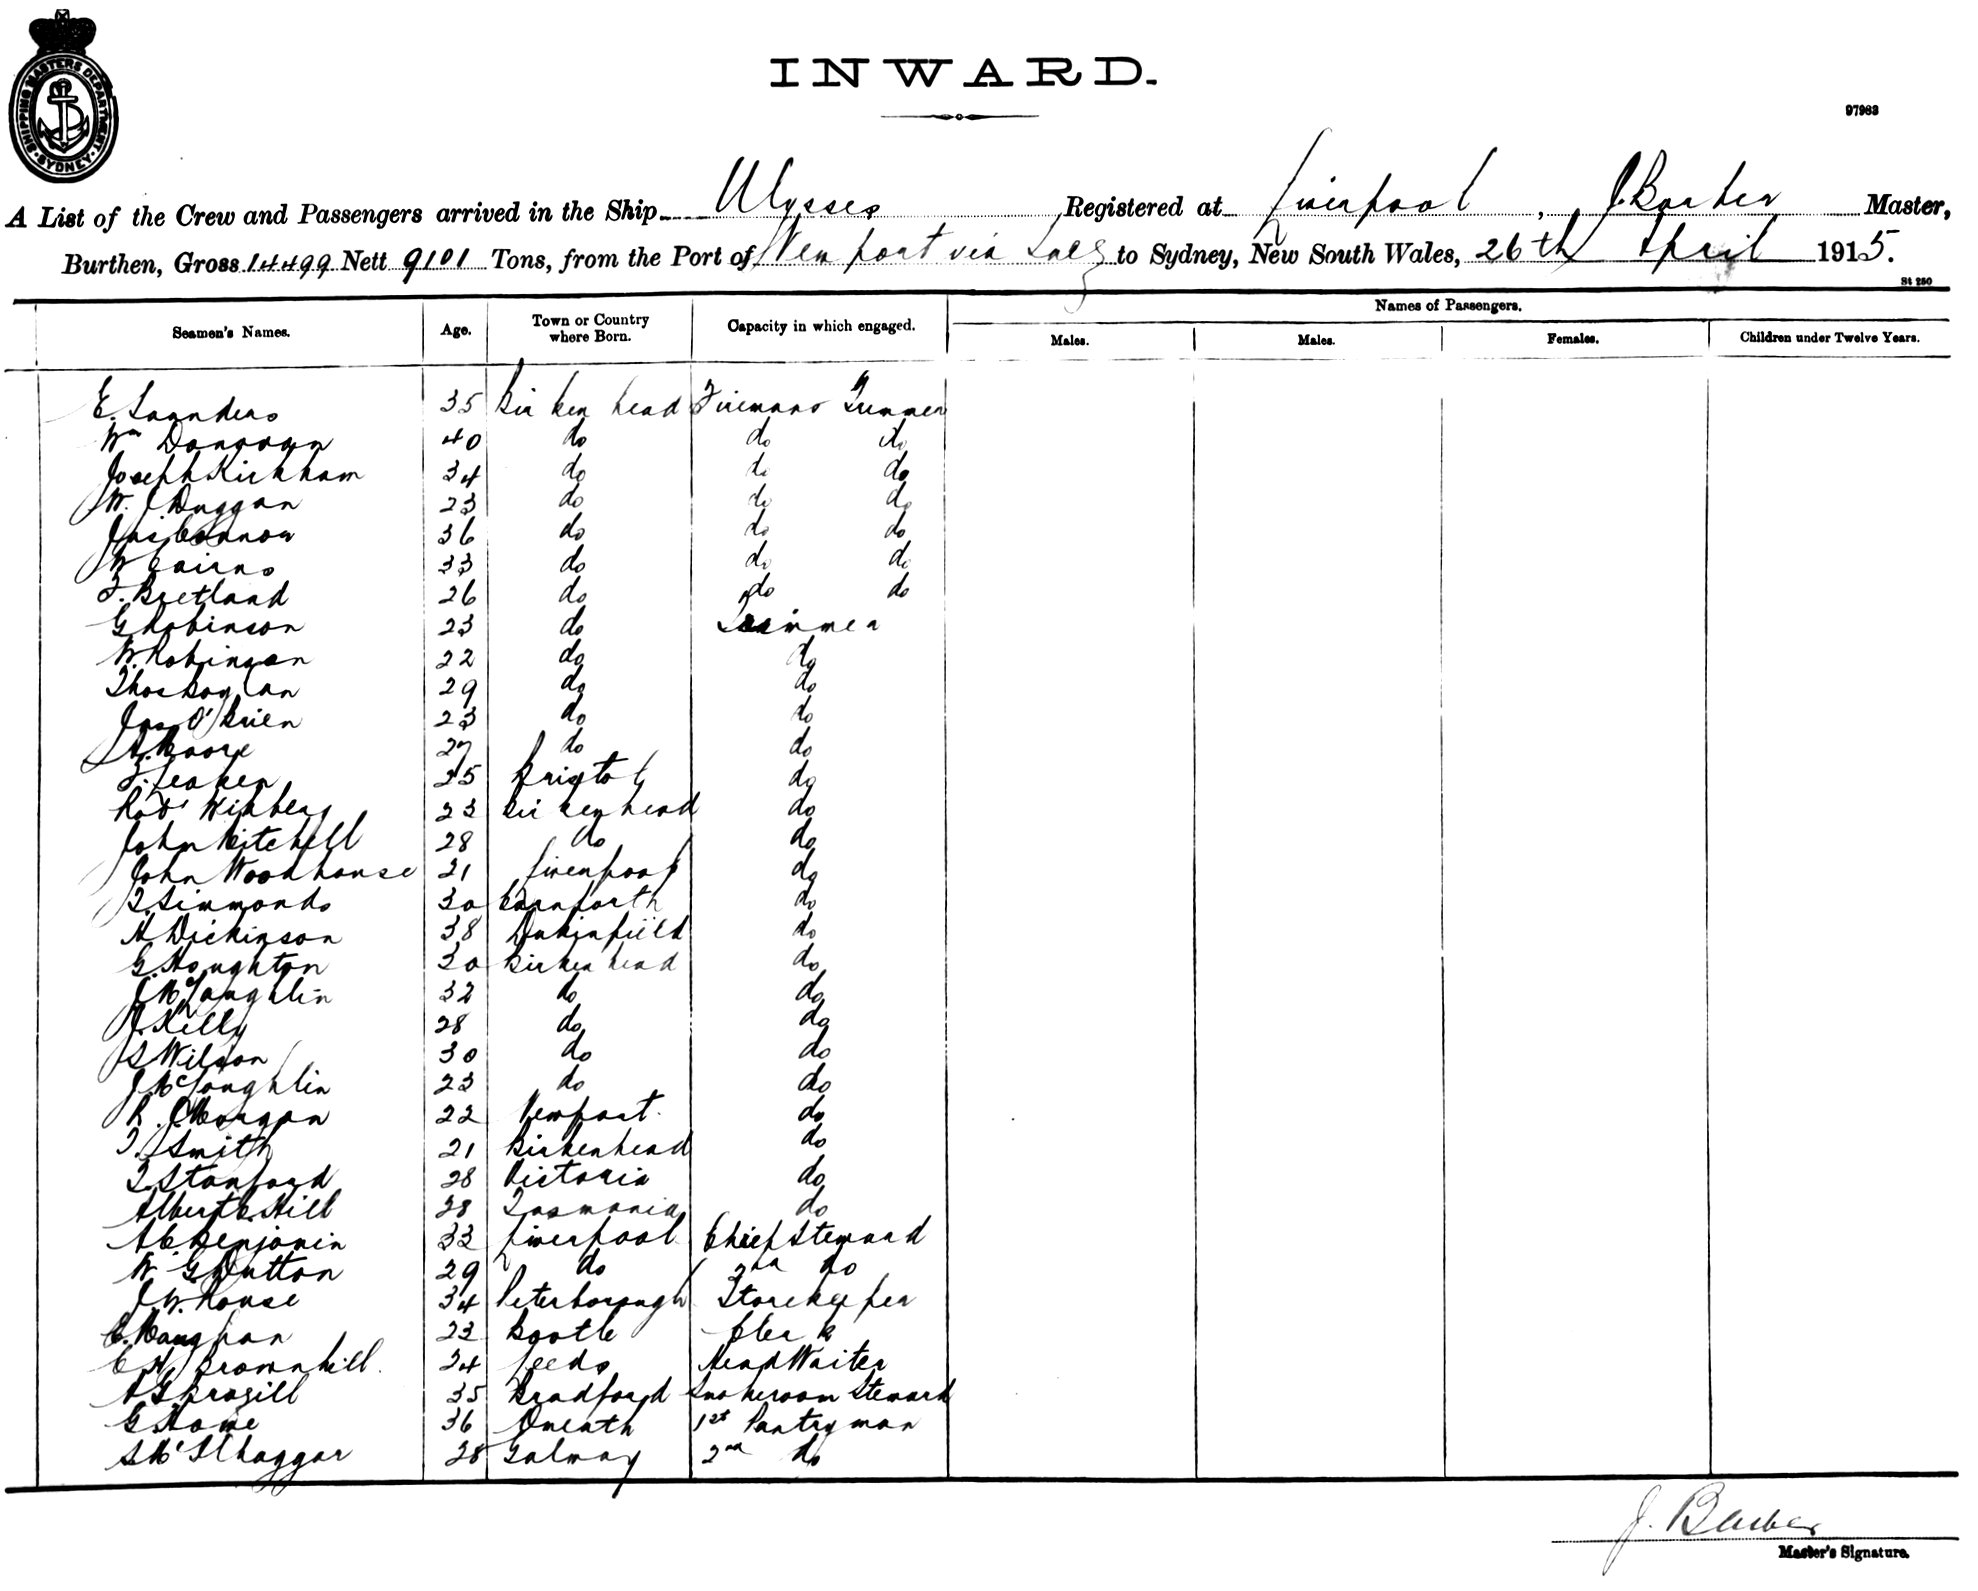 SHIPPING MASTERS DEPARTMENT. SYDNEY
INWARD.
97983
A List of the Crew and Passengers arrived in the Ship Ulysses Registered at Liverpool, J. Barber Master,
Burthen, Gross 14499 Nett 9101 Tons, from the Port of Newport via Suez to Sydney, New South Wales, 26th April 1915.
St 280
Seamen's Names. Age. Town or Country where Born. Capacity in which engaged. Names of Passengers.
Males. Males. Females. Children under Twelve Years.
E. Saunders 35 Birkenhead Firemans Trimmer
Wm Donovan 40 do do do
Joseph Kirkham 34 do do do
W. J Duggan 23 do do do
Jas Cannon 36 do do do
W Cairns 33 do do do
F. Bretland 26 do do do
G Robinson 23 do Trimmer
W. Robinson 22 do do
Thos Boylan 29 do do
Jas O'Brien 23 do do
A. Moore 27 do do
25 Bristol do
Robt 23 Birkenhead do
John Mitchell 28 do do
John Woodhouse 21 Liverpool do
T. Simmonds 30 Carnforth do
H Dickinson 38 Dukinfield do
G. Houghton 30 Birkenhead do
J McLoughlin 32 do do
J. Kelly 28 do do
S Wilson 30 do do
J. McLoughlin 23 do do
R. J Morgan 22 Newport. do
T. Smith 21 Birkenhead do
T. Stanford 28 Victoria do
Albert Hill 28 Tasmania do
A C Benjamin 33 Liverpool Chief Steward
W. G Dutton 29 do 2nd do
J. W. Rouse 34 Peterborough Storekeeper
C. Maughan 23 Bootle Clerk
C H Brownhill. 24 Leeds Head Waiter
A G Bragill 35 Bradford Smokeroom Steward
G Howe 36 1st Pantryman
S Mc 28 Galway 2nd do
J. Barber
Master's Signature.